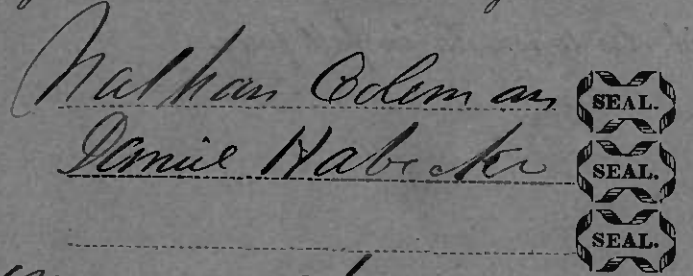 Nathan Coleman SEAL.
Daniel Habecker SEAL.
SEAL.